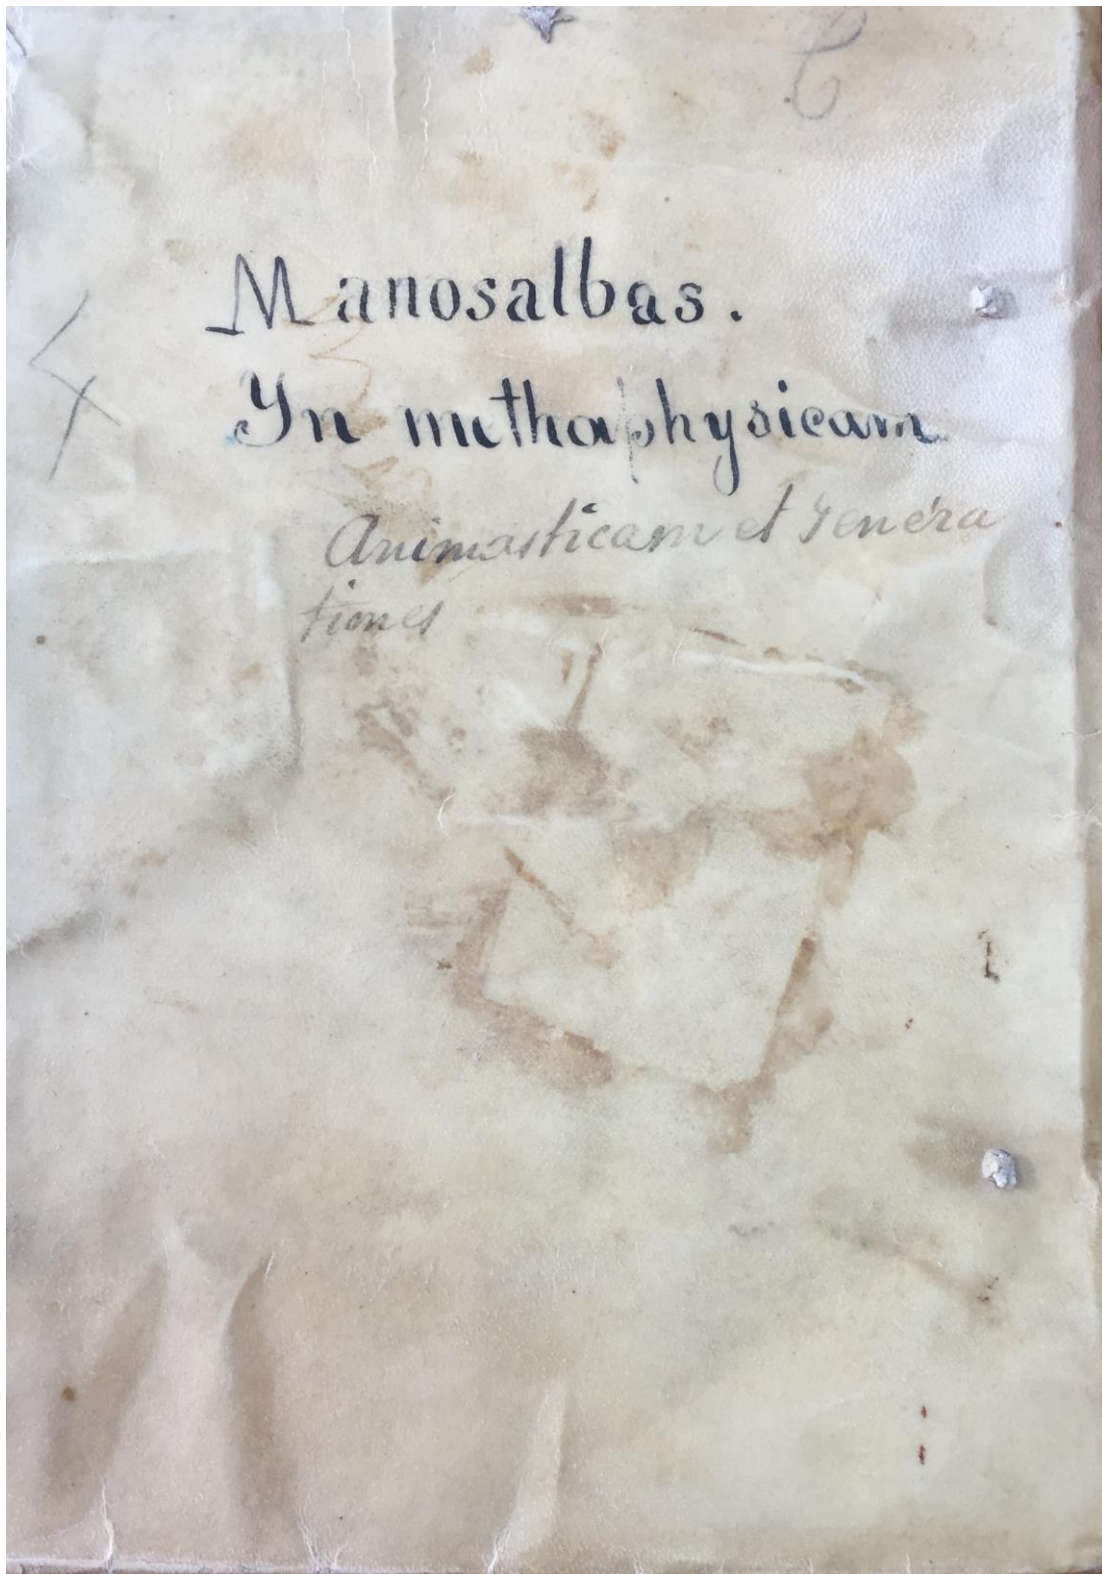 Manosalbas.
In methaphysicam
Animasticam et genera
tiones